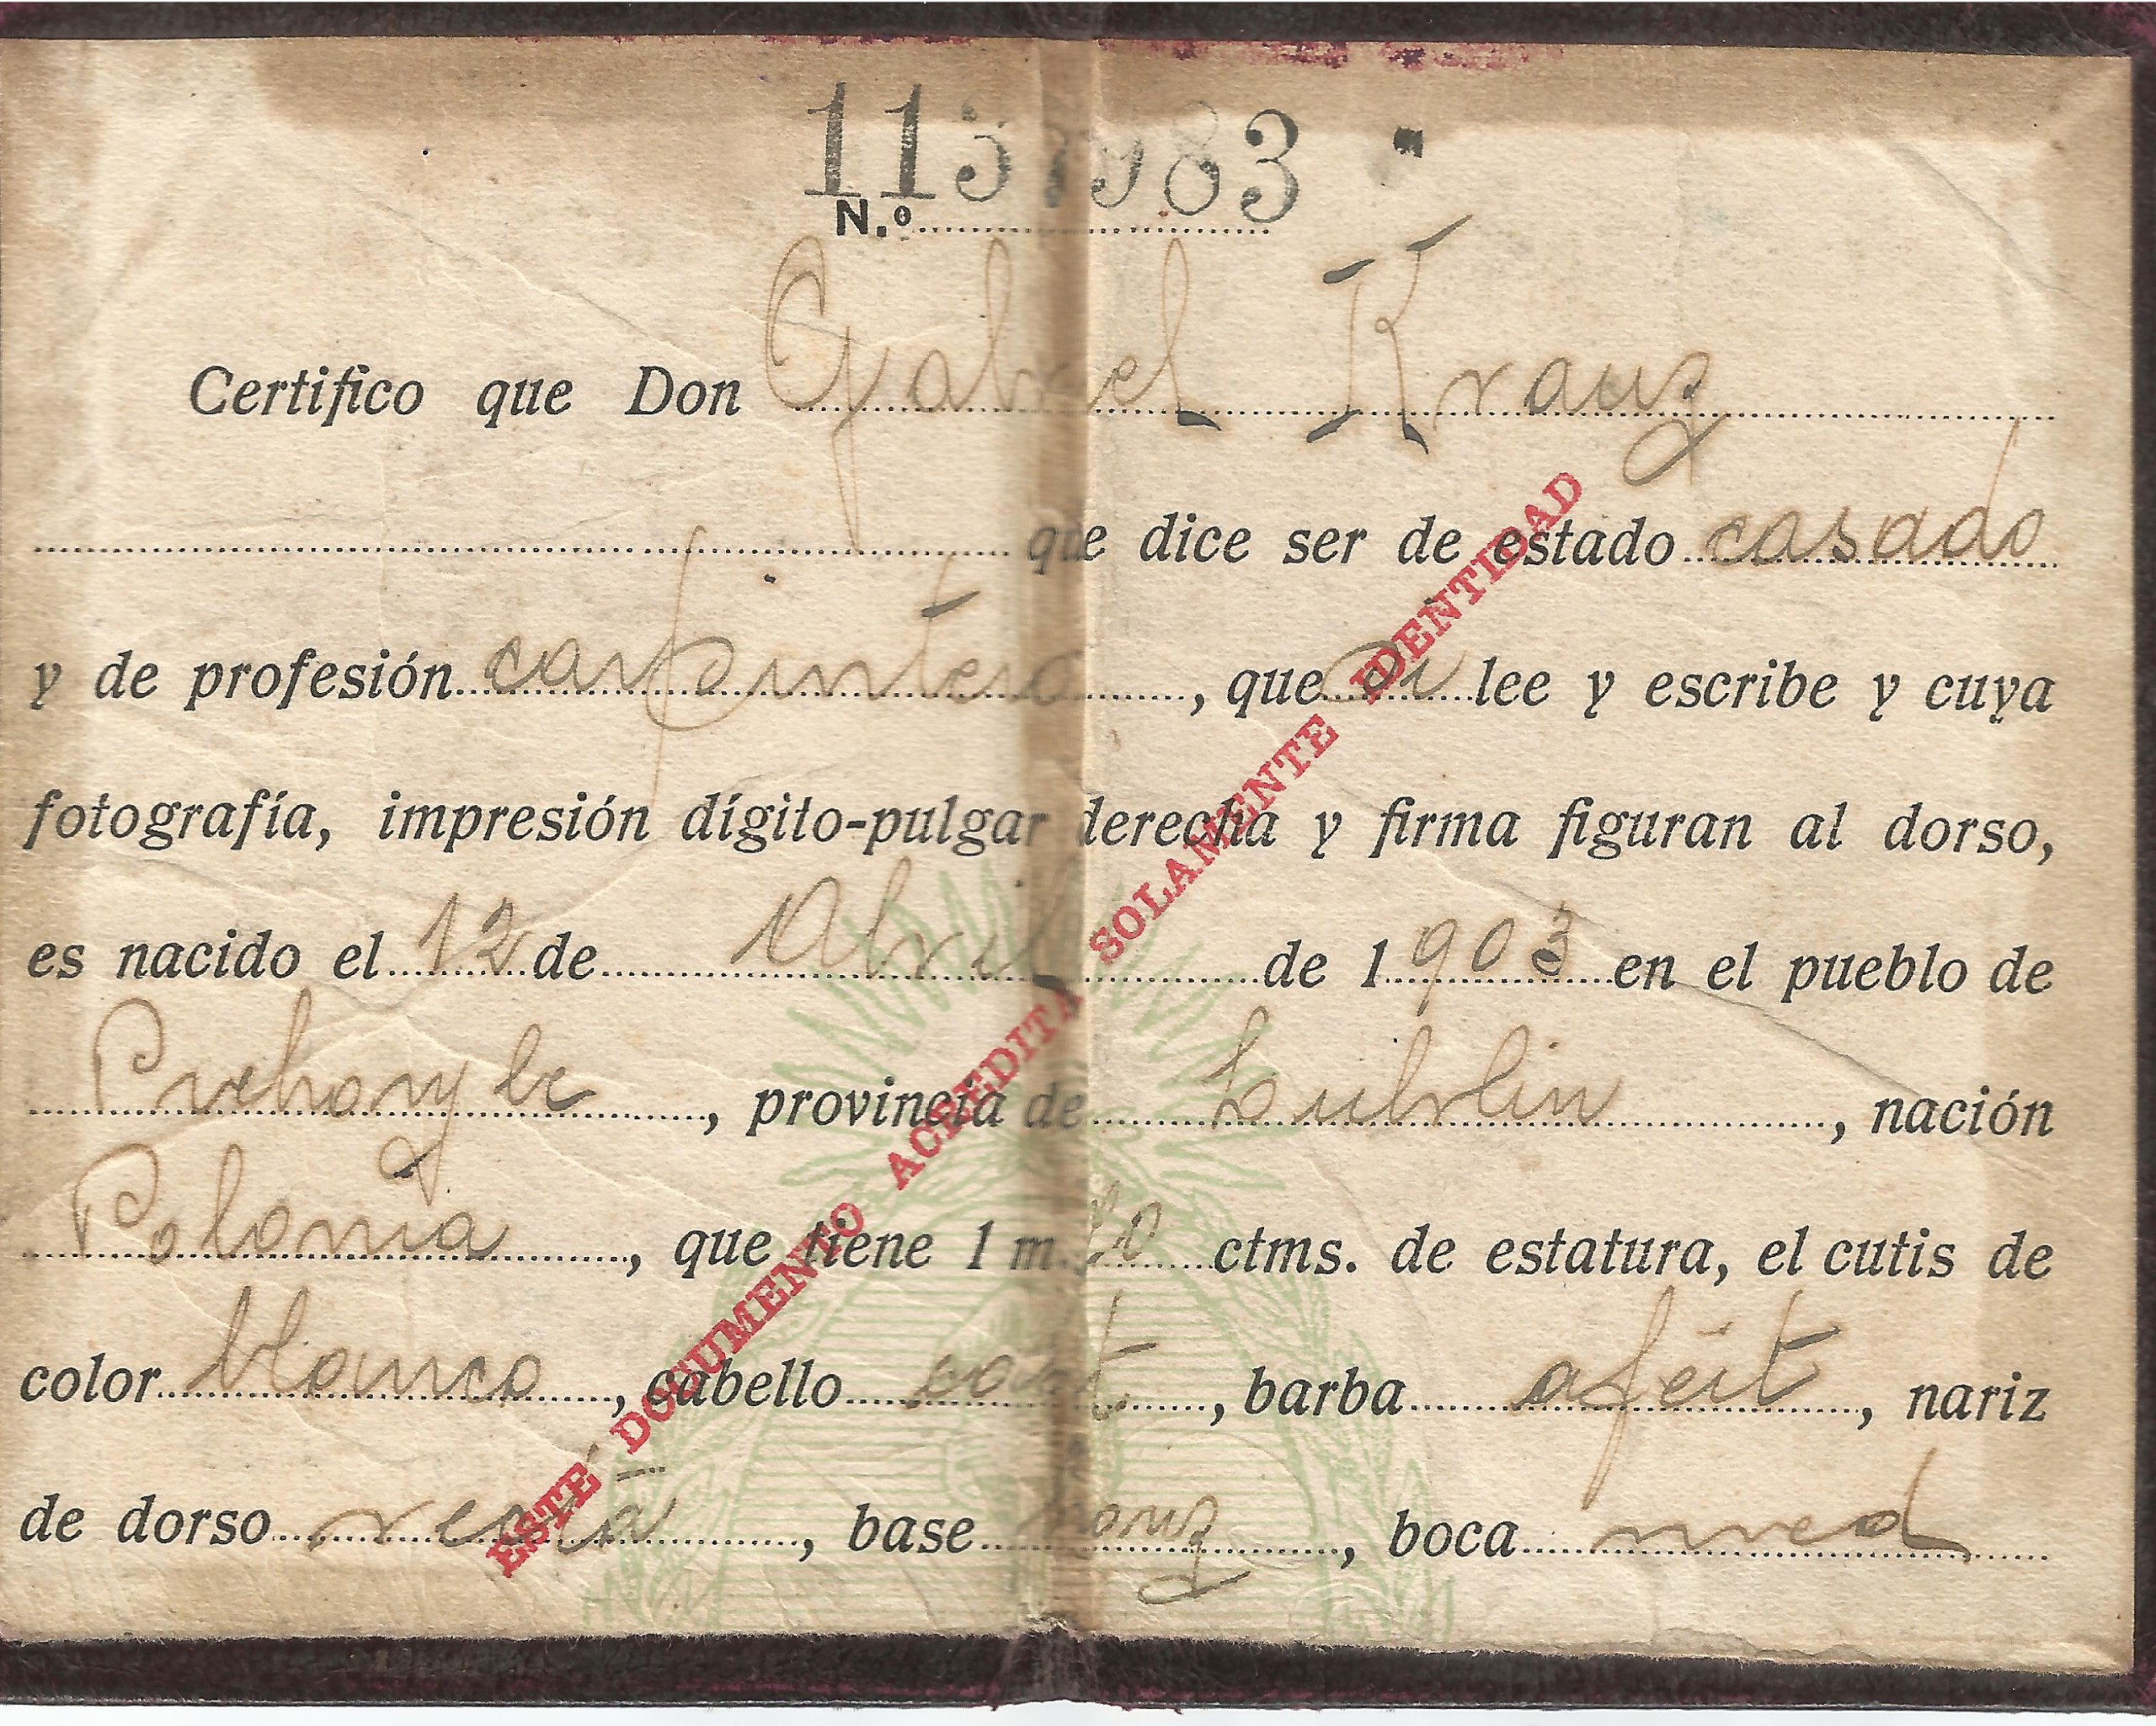 N.º
Certifico que Don Gabriel Krauz
que dice ser de estado casado
y de profesión carpintero, que si lee y escribe y cuya
fotografía, impresión dígito-pulgar derecha y firma figuran al dorso,
es nacido el 12 de Abril de 1903 en el pueblo de
, provincia de Lublin, nación
Polonia, que tiene 1 m. ctms. de estatura, el cutis de
color blanco, cabello cast, barba afeit, nariz
de dorso recta, base horiz, boca med
ESTE DOCUMENTO ACREDITA SOLAMENTE IDENTIDAD